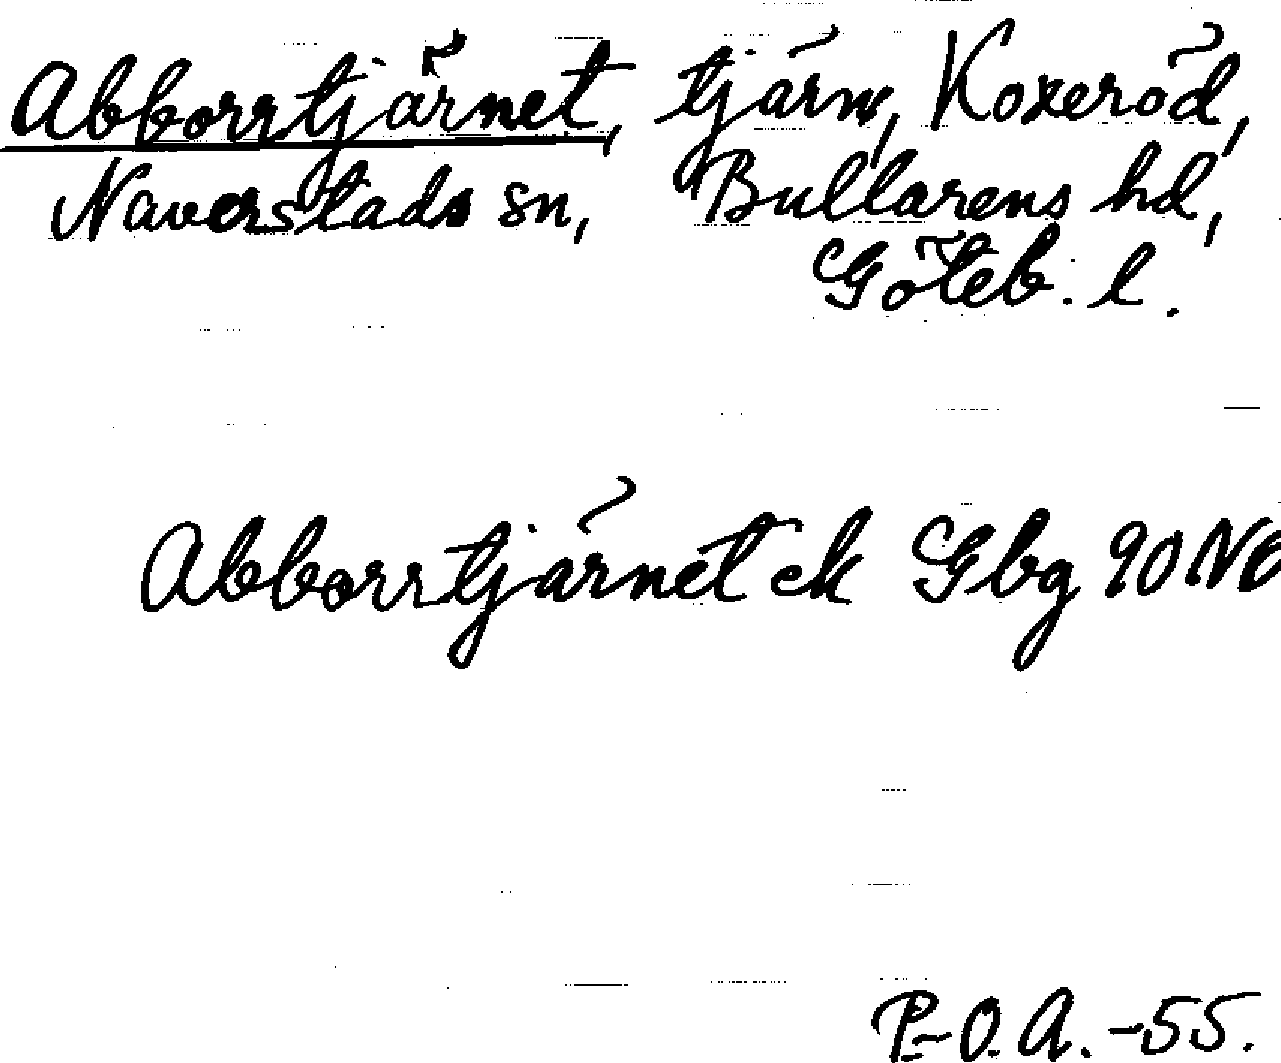 Abborrtjärnet, tjärn, Koxeröd,
Naverstads sn, Bullarens hd,
Göteb. l.
Abborrtjärnet ek Gbg 90 NO
P-O.A. -55.